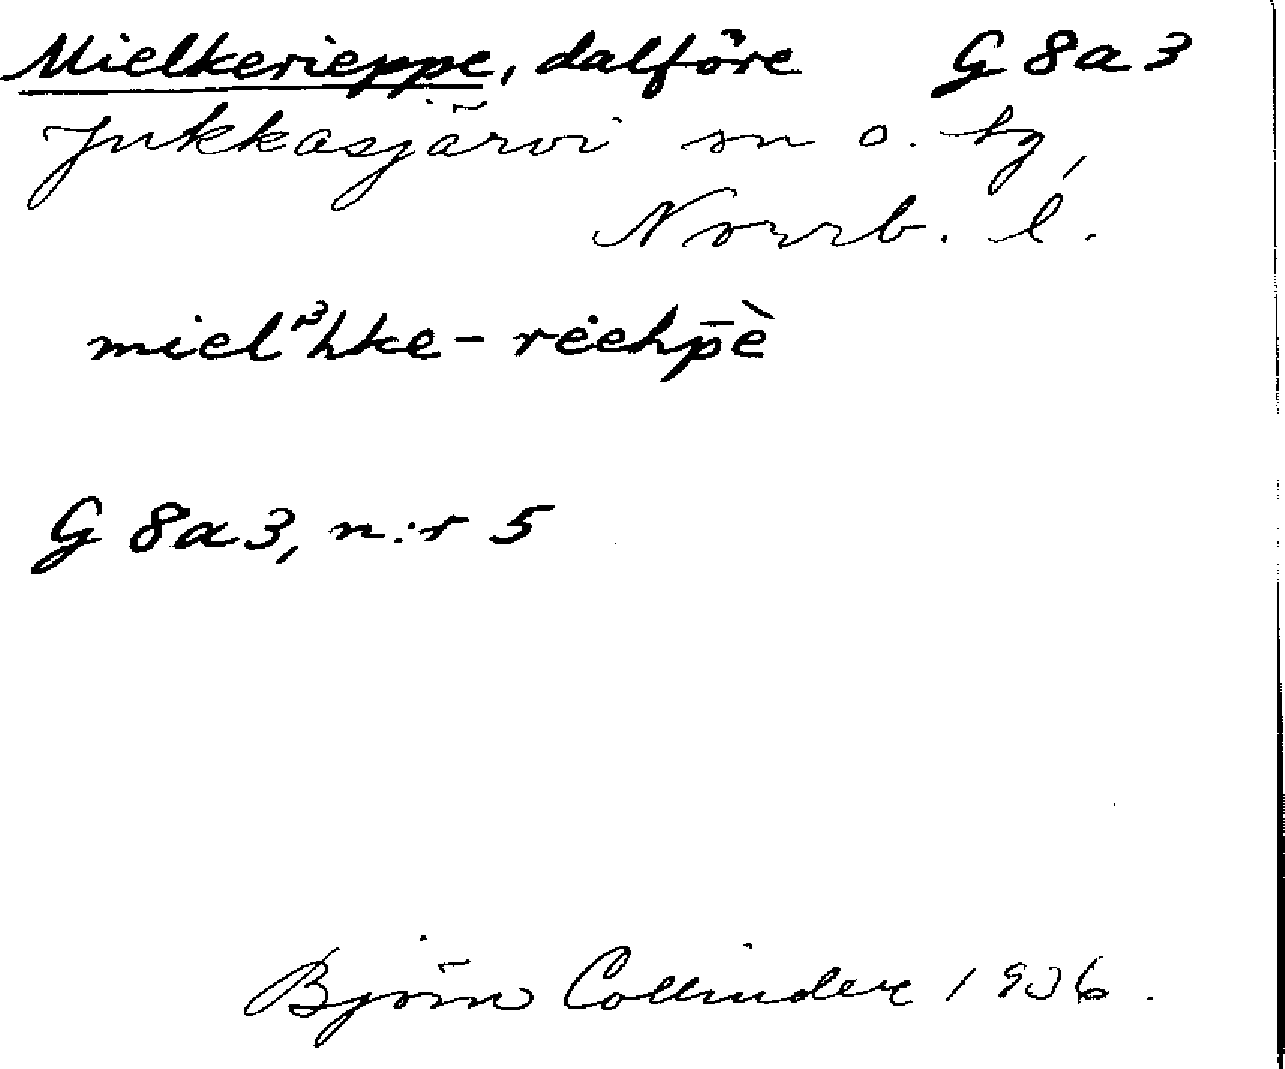 Mielkerieppe, dalföre G 8a3
Jukkasjärvi sn o. tg,
Norrb. l.
miel³hke-rėehp̄è
G 8a3, n:r 5
Björn Collinder 1936.